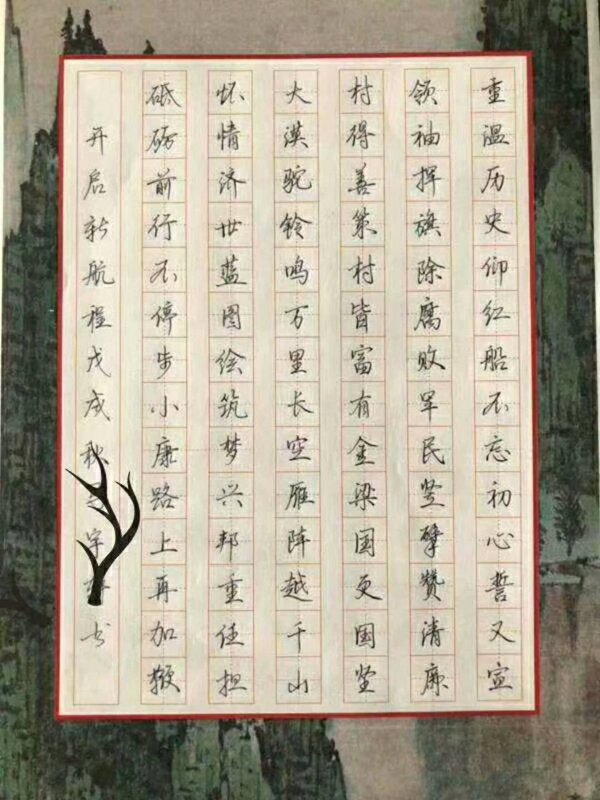 重温历史仰红船不忘初心誓又宣
领袖挥旗除腐败军民竖擘赞清廉
村得善策村皆富有金梁国更国坚
大漠驼铃鸣万里长空雁阵越千山
怀情济世蓝图绘筑梦兴邦重任担
砥砺前行不停步小康路上再加鞭
开启新航程戊戌秋宇书